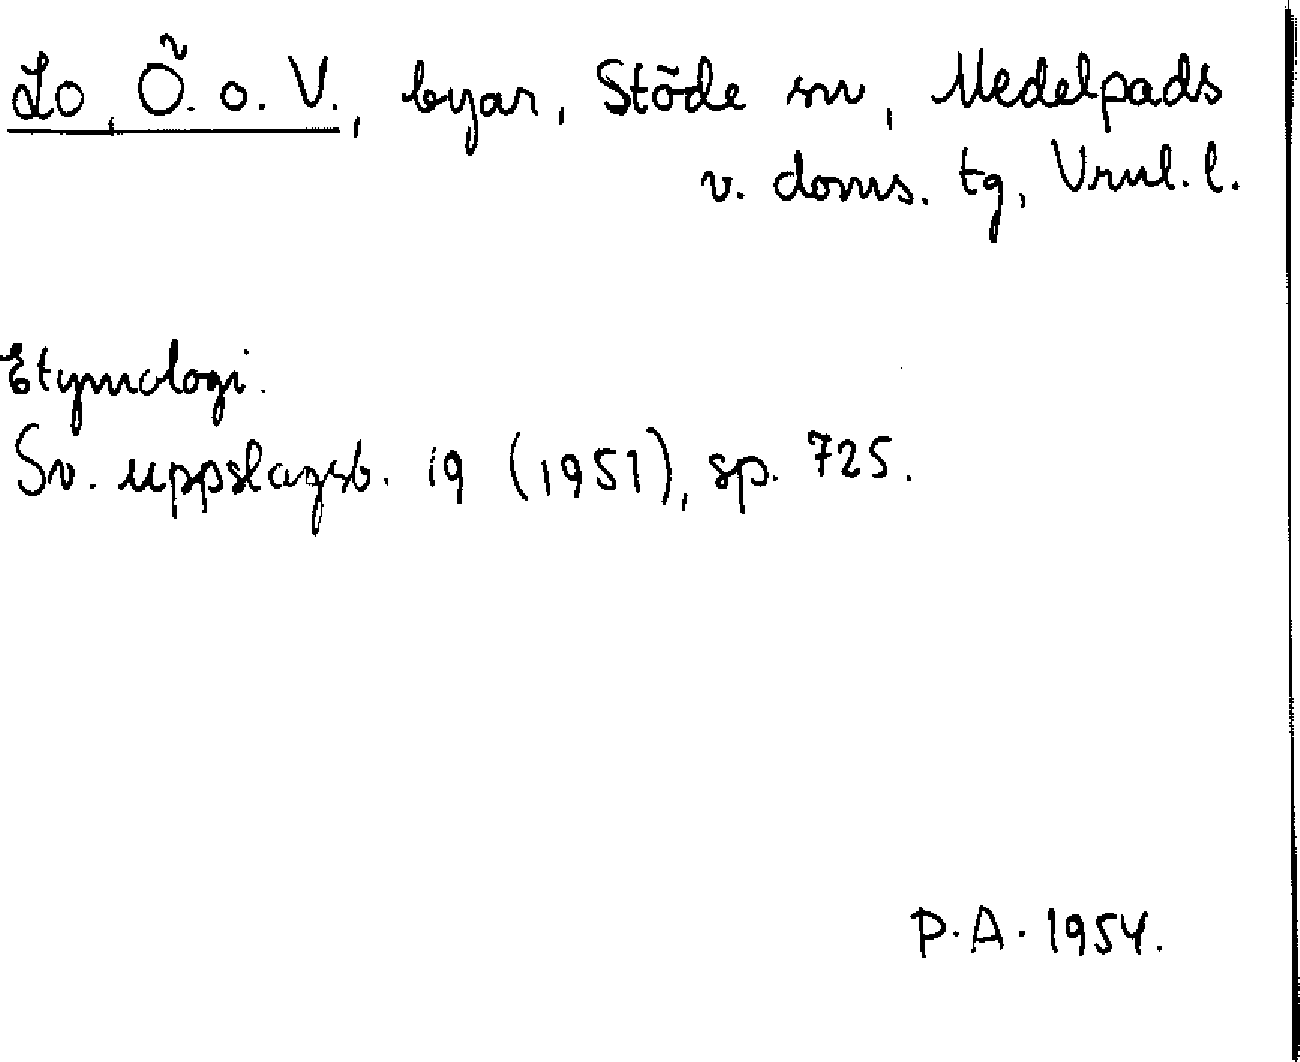 Lo, Ö. o. V., byar, Stöde sn, Medelpads
v. doms. tg, Vrnl. l.
Etymologi.
Sv. uppslagsb. 19 (1951), sp. 725.
P. A. 1954.